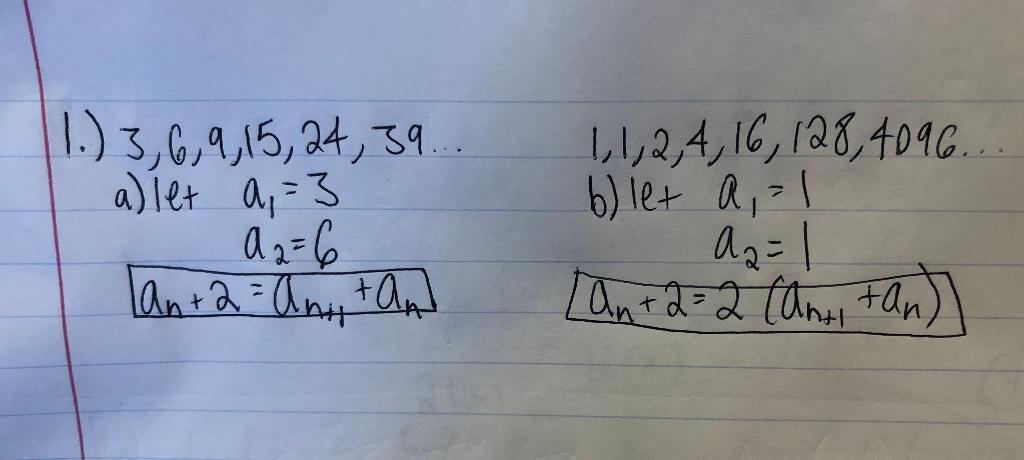 1.) 3, 6, 9, 15, 24, 39...
a) let a₁ = 3
a₂ = 6
aₙ + 2 = aₙ₊₁ + aₙ
1, 1, 2, 4, 16, 128, 4096...
b) let a₁ = 1
a₂ = 1
aₙ + 2 = 2 (aₙ₊₁ + aₙ)